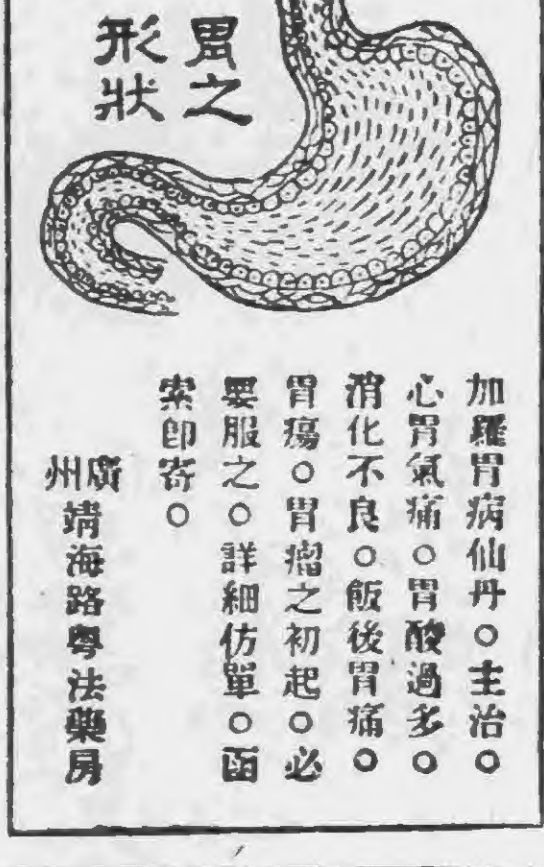 胃之
形狀
加羅胃病仙丹○主治○
心胃氣痛○胃酸過多○
消化不良○飯後胃痛○
胃瘍○胃瘤之初起○必
要服之○詳細仿單○函
索卽寄○
廣州靖海路粤法藥房